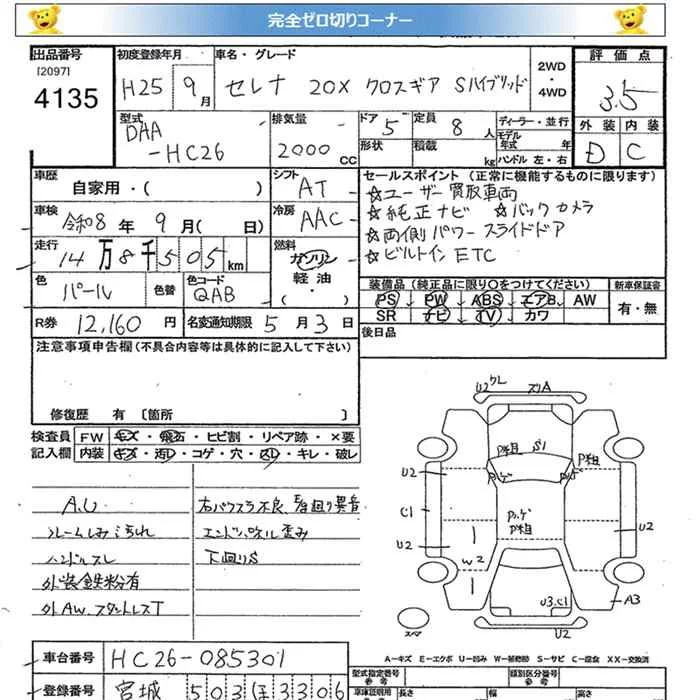 完全ゼロ切りコーナー
出品番号
[2097]
4135
初度登録年月
H25年 9月
車名・グレード
セレナ 20X クロスギア Sハイブリッド
2WD
・
4WD
評価点
3.5
外装 内装
D C
型式
DAA
-HC26
排気量
2000 CC
ドア 5
定員 8人
形状 積載 kg
ディーラー・並行
モデル
年式 年
ハンドル 左・右
車歴
自家用・( )
シフト
AT
車検
令和8年 9月( 日)
冷房
AAC
走行
14万8千505km
燃料
ガソリン
軽油
( ・ )
色
パール
色替
色コード
QAB
R券 12,160円
名変通知期限 5月3日
セールスポイント(正常に機能するものに限ります)
☆ユーザー買取車両
☆純正ナビ ☆バックカメラ
☆両側パワースライドドア
☆ビルトインETC
装備品(純正品に限り○をつけてください)
新車保証書
PS PW ABS エアB AW
有・無
SR ナビ TV カワ
後日品
注意事項申告欄(不具合内容等は具体的に記入して下さい)
修復歴 有[箇所 ]
検査員 FW キズ・飛石・ヒビ割・リペア跡・×要
記入欄 内装 キズ・汚レ・コゲ・穴・スレ・キレ・破レ
A.U
右パワスラ不良
異音
エンドパネル歪み
ハンドルスレ
下廻りS
外装鉄粉有
車台番号 HC26-085301
登録番号 宮城 503 ほ 3306
U2 ワレ スリA
P粗 S1 P粗
Pハゲ
U2
C1
U2
Pハゲ
P粗
U2
W2
U3.C1
A3
U2
スペア
A-キズ E-エクボ U-凹み W-補修跡 S-サビ C-腐食 XX-交換済
型式指定番号
類別区分番号
車庫証明用
参考
長さ
幅
高さ